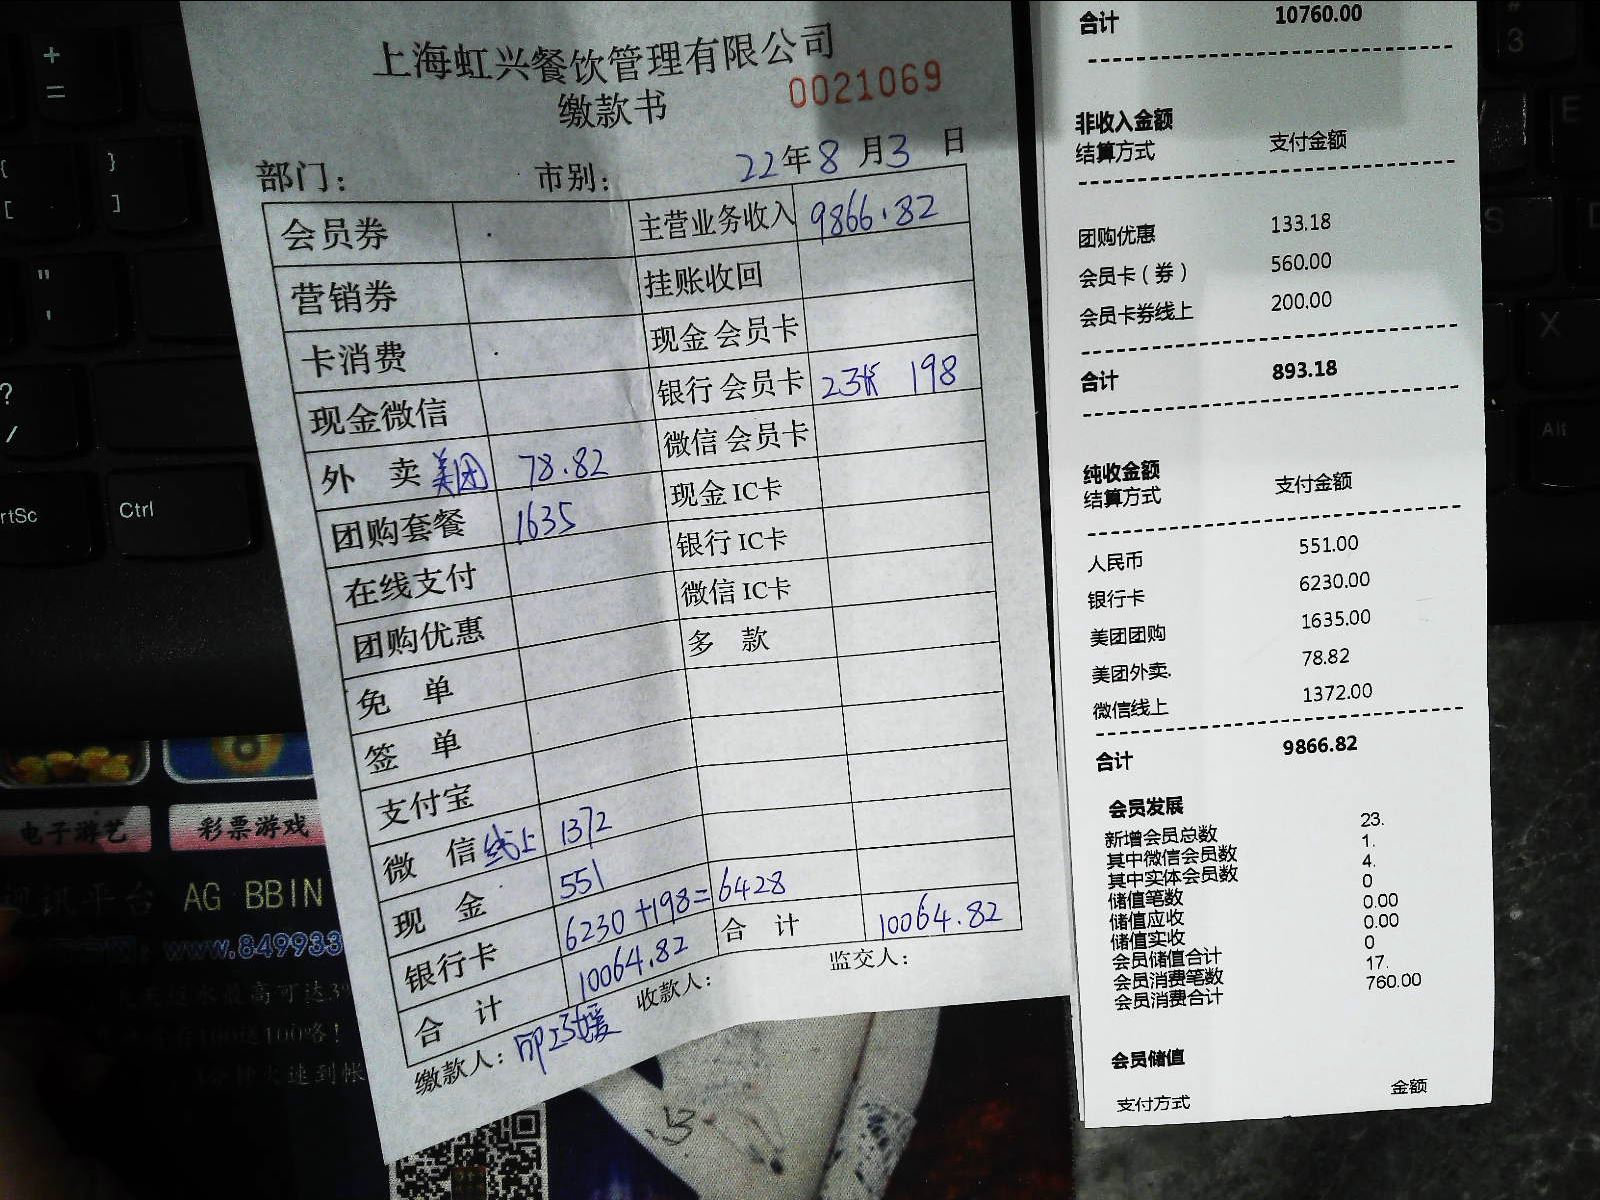 上海虹兴餐饮管理有限公司
缴款书
0021069
部门： 市别： 22年8月3日
会员券 主营业务收入 9866.82
营销券 挂账收回
卡消费 现金会员卡
现金微信 银行会员卡 23张 198
外 卖 美团 78.82 微信会员卡
团购套餐 1635 现金IC卡
在线支付 银行IC卡
团购优惠 微信IC卡
免 单 多 款
签 单
支付宝
微 信 线上 1372
现 金 551
银行卡 6230+198=6428
合 计 10064.82 合 计 10064.82
缴款人： 收款人： 监交人：
合计 10760.00
非收入金额
结算方式 支付金额
团购优惠 133.18
会员卡（券） 560.00
会员卡券线上 200.00
合计 893.18
纯收金额
结算方式 支付金额
人民币 551.00
银行卡 6230.00
美团团购 1635.00
美团外卖. 78.82
微信线上 1372.00
合计 9866.82
会员发展
新增会员总数 23.
其中微信会员数 1.
其中实体会员数 4.
储值笔数 0
储值应收 0.00
储值实收 0.00
会员储值合计 0
会员消费笔数 17.
会员消费合计 760.00
会员储值
支付方式 金额
+
=
}
]
{
[
"
'
?
/
rtSc
Ctrl
#
3
E
S
X
Alt
电子游艺 彩票游戏
视讯平台 AG BBIN
www.849933